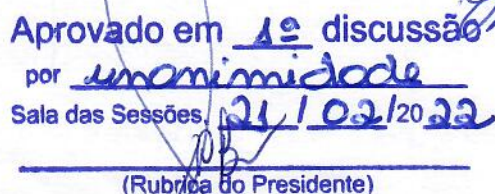 Aprovado em 1ª discussão
por unanimidade
Sala das Sessões, 21 / 02 /20 22
(Rubrica do Presidente)